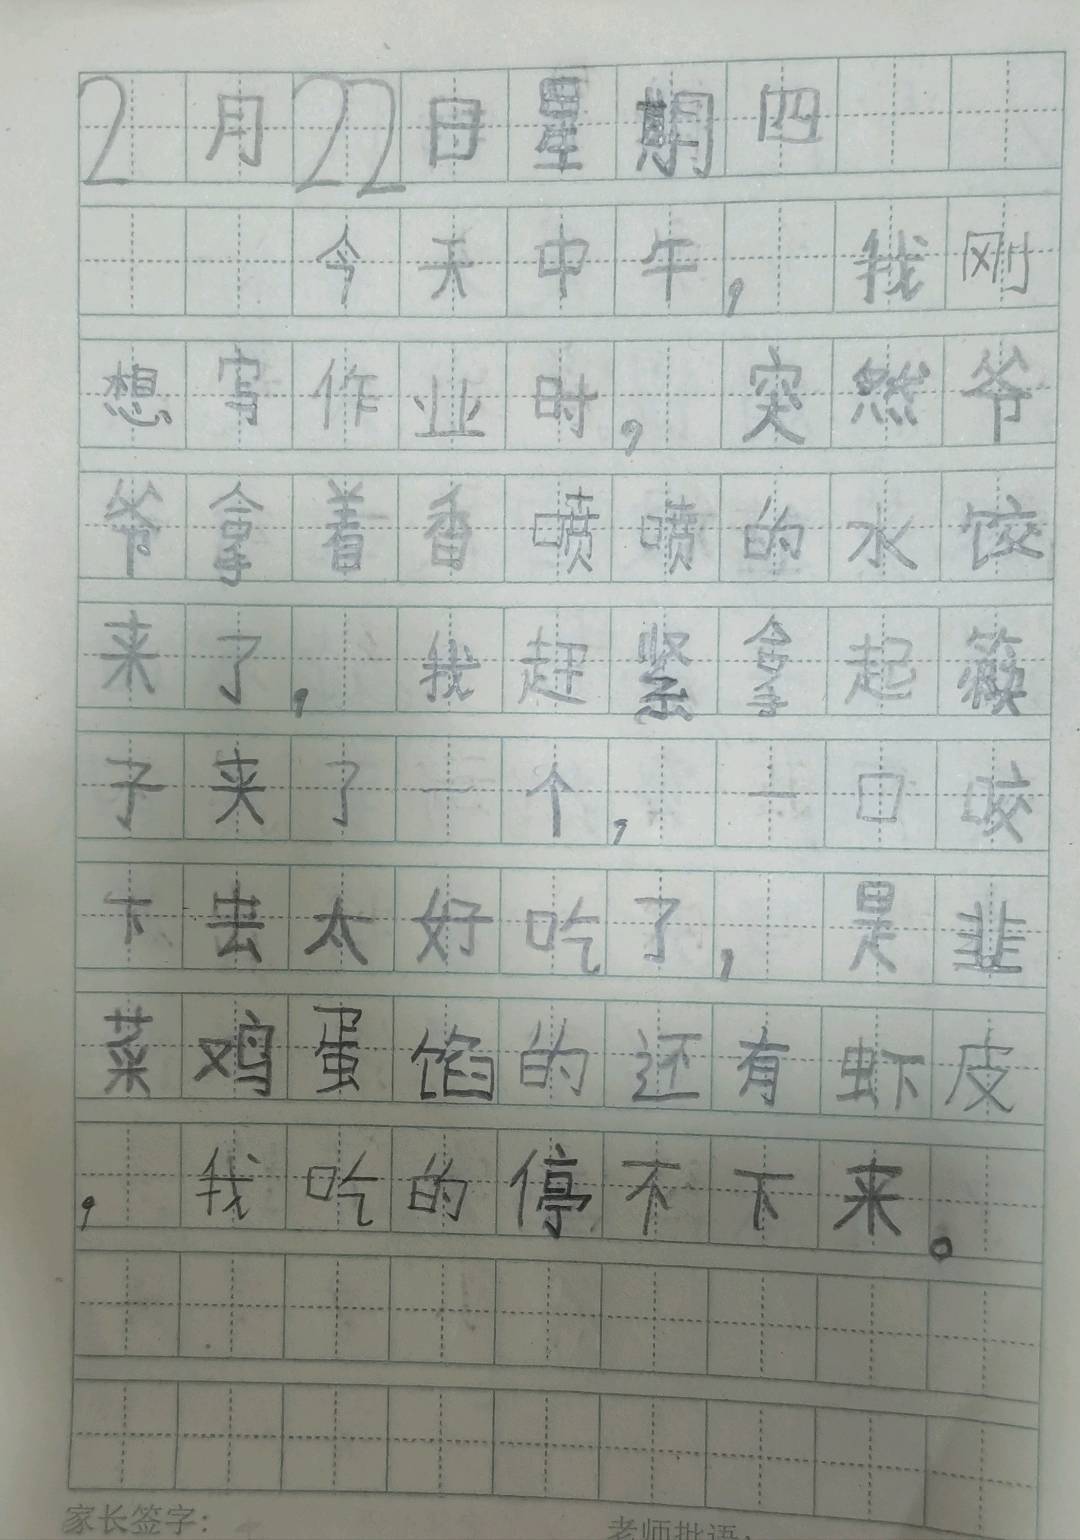 2月22日星期四
今天中午，我刚
想写作业时，突然爷
爷拿着香喷喷的水饺
来了，我赶紧拿起筷
子夹了一个，一口咬
下去太好吃了，是韭
菜鸡蛋馅的还有虾皮
，我吃的停不下来。
家长签字：
老师批语：